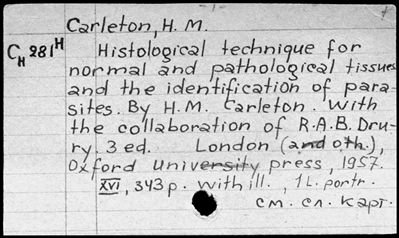 Carleton, H. M.
CH 281H Histological technique for
normal and pathological tissues
and the identification of para-
sites. By H.M. Carleton. With
the collaboration of R.A.B. Dru-
ry. 3 ed. London (and oth.),
Oxford university press, 1957.
XVI, 343 p. with ill., 1 L. portr.
см. сл. карт.